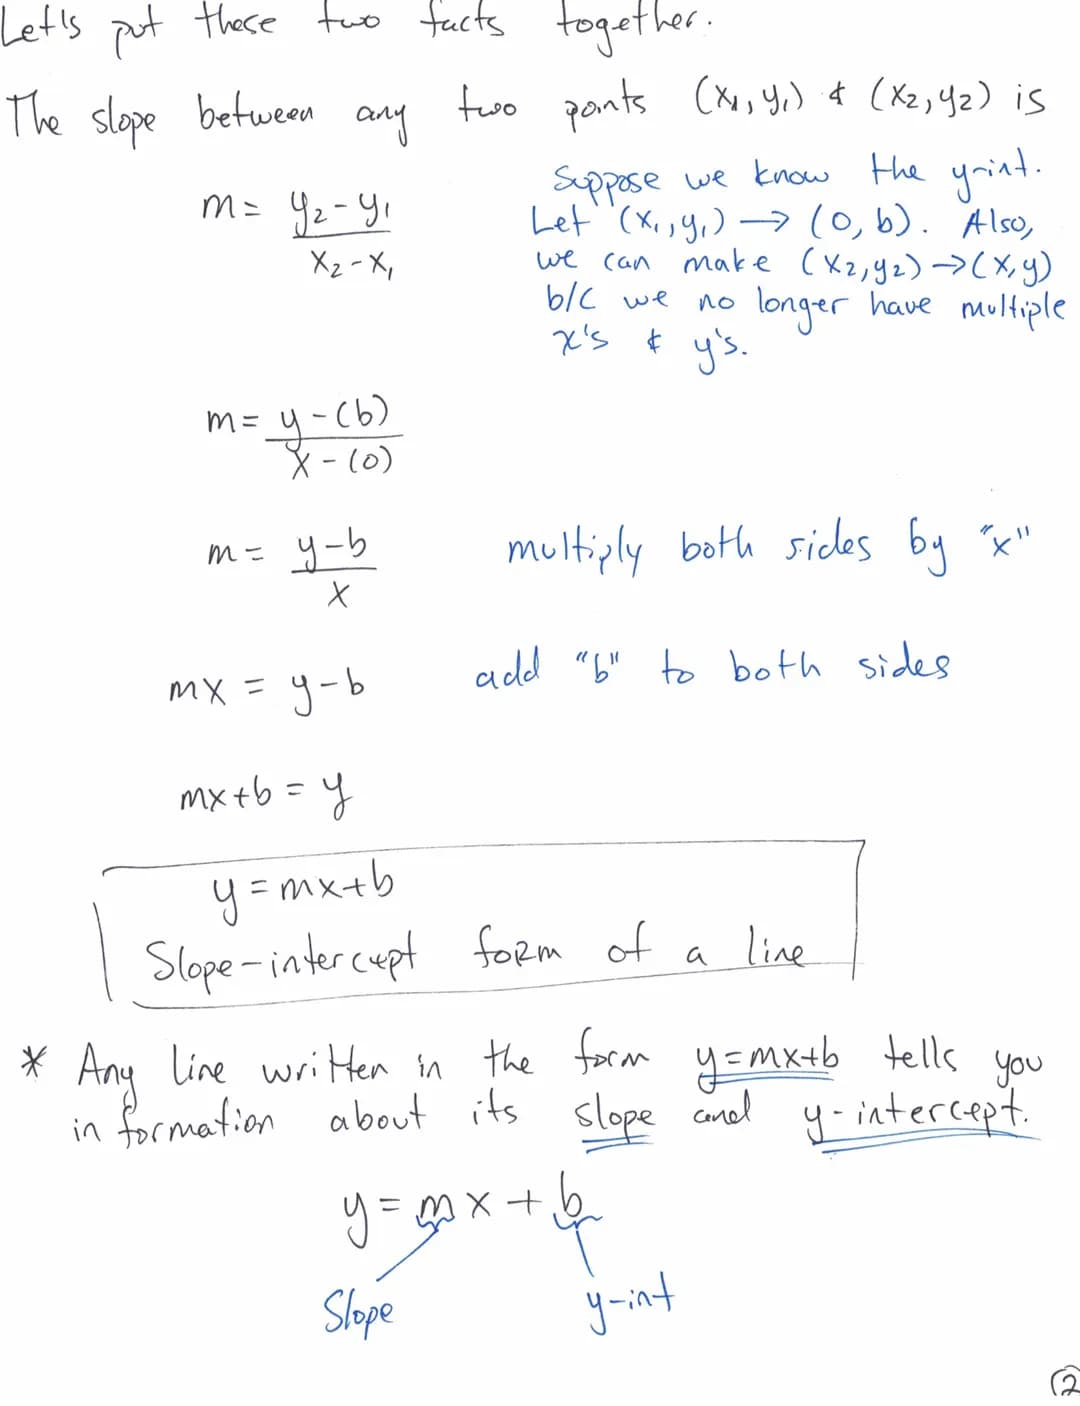 Let's put these two facts together.
The slope between any two points (x₁, y₁) & (x₂, y₂) is
m = y₂ - y₁ / x₂ - x₁
Suppose we know the y-int.
Let (x₁, y₁) → (0, b). Also,
we can make (x₂, y₂) → (x, y)
b/c we no longer have multiple
x's & y's.
m = y - (b) / x - (0)
m = y - b / x multiply both sides by "x"
mx = y - b add "b" to both sides
mx + b = y
y = mx + b
Slope-intercept form of a line
* Any line written in the form y = mx + b tells you
information about its slope and y-intercept.
y = mx + b
Slope y-int
(2